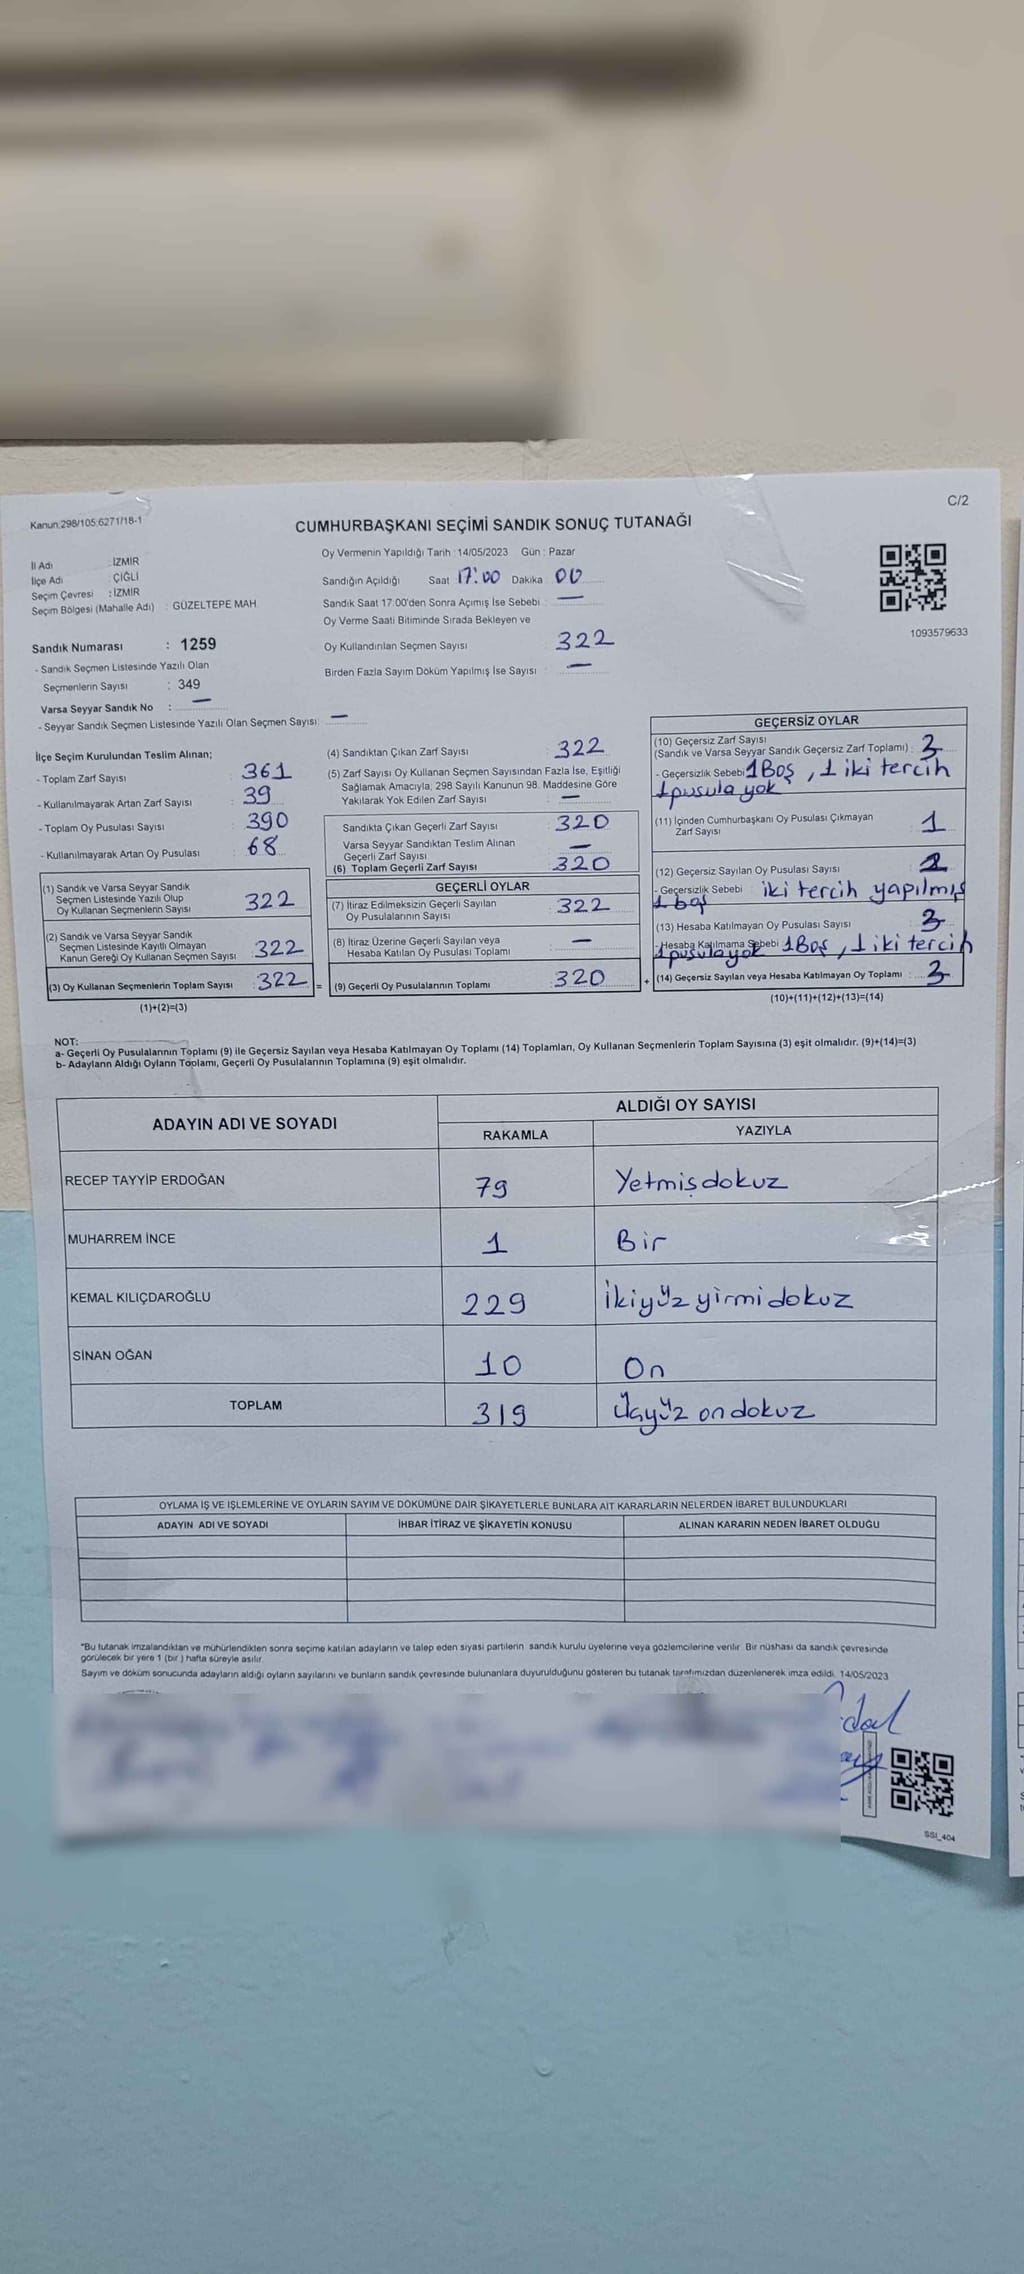 C/2
Kanun:298/105;6271/18-1
CUMHURBAŞKANI SEÇİMİ SANDIK SONUÇ TUTANAĞI
İl Adı : İZMİR
İlçe Adı : ÇİĞLİ
Seçim Çevresi : İZMİR
Seçim Bölgesi (Mahalle Adı) : GÜZELTEPE MAH
Sandık Numarası : 1259
- Sandık Seçmen Listesinde Yazılı Olan
Seçmenlerin Sayısı : 349
Varsa Seyyar Sandık No : —
- Seyyar Sandık Seçmen Listesinde Yazılı Olan Seçmen Sayısı: —
Oy Vermenin Yapıldığı Tarih : 14/05/2023 Gün : Pazar
Sandığın Açıldığı Saat 17:00 Dakika 00
Sandık Saat 17.00'den Sonra Açımış İse Sebebi : —
Oy Verme Saati Bitiminde Sırada Bekleyen ve
Oy Kullandırılan Seçmen Sayısı 322
Birden Fazla Sayım Döküm Yapılmış İse Sayısı : —
1093579633
İlçe Seçim Kurulundan Teslim Alınan;
- Toplam Zarf Sayısı : 361
- Kullanılmayarak Artan Zarf Sayısı : 39
- Toplam Oy Pusulası Sayısı : 390
- Kullanılmayarak Artan Oy Pusulası : 68
(1) Sandık ve Varsa Seyyar Sandık
Seçmen Listesinde Yazılı Olup
Oy Kullanan Seçmenlerin Sayısı 322
(2) Sandık ve Varsa Seyyar Sandık
Seçmen Listesinde Kayıtlı Olmayan
Kanun Gereği Oy Kullanan Seçmen Sayısı 322
(3) Oy Kullanan Seçmenlerin Toplam Sayısı : 322 =
(1)+(2)=(3)
(4) Sandıktan Çıkan Zarf Sayısı : 322
(5) Zarf Sayısı Oy Kullanan Seçmen Sayısından Fazla İse, Eşitliği
Sağlamak Amacıyla, 298 Sayılı Kanunun 98. Maddesine Göre
Yakılarak Yok Edilen Zarf Sayısı : —
Sandıkta Çıkan Geçerli Zarf Sayısı : 320
Varsa Seyyar Sandıktan Teslim Alınan
Geçerli Zarf Sayısı —
(6) Toplam Geçerli Zarf Sayısı : 320
GEÇERLİ OYLAR
(7) İtiraz Edilmeksizin Geçerli Sayılan
Oy Pusulalarının Sayısı : 322
(8) İtiraz Üzerine Geçerli Sayılan veya
Hesaba Katılan Oy Pusulası Toplamı —
(9) Geçerli Oy Pusulalarının Toplamı : 320 +
GEÇERSİZ OYLAR
(10) Geçersiz Zarf Sayısı
(Sandık ve Varsa Seyyar Sandık Geçersiz Zarf Toplamı) : 3
- Geçersizlik Sebebi 1 Boş , 1 iki tercih
1 pusula yok
(11) İçinden Cumhurbaşkanı Oy Pusulası Çıkmayan
Zarf Sayısı 1
(12) Geçersiz Sayılan Oy Pusulası Sayısı :
- Geçersizlik Sebebi iki tercih yapılmış
1 boş
(13) Hesaba Katılmayan Oy Pusulası Sayısı 3
- Hesaba Katılmama Sebebi 1 Boş , 1 iki tercih
1 pusula yok
(14) Geçersiz Sayılan veya Hesaba Katılmayan Oy Toplamı : 3
(10)+(11)+(12)+(13)=(14)
NOT:
a- Geçerli Oy Pusulalarının Toplamı (9) ile Geçersiz Sayılan veya Hesaba Katılmayan Oy Toplamı (14) Toplamları, Oy Kullanan Seçmenlerin Toplam Sayısına (3) eşit olmalıdır. (9)+(14)=(3)
b- Adayların Aldığı Oyların Toplamı, Geçerli Oy Pusulalarının Toplamına (9) eşit olmalıdır.
ADAYIN ADI VE SOYADI ALDIĞI OY SAYISI
RAKAMLA YAZIYLA
RECEP TAYYİP ERDOĞAN 79 Yetmişdokuz
MUHARREM İNCE 1 Bir
KEMAL KILIÇDAROĞLU 229 İkiyüz yirmidokuz
SİNAN OĞAN 10 On
TOPLAM 319 Üçyüz ondokuz
OYLAMA İŞ VE İŞLEMLERİNE VE OYLARIN SAYIM VE DÖKÜMÜNE DAİR ŞİKAYETLERLE BUNLARA AİT KARARLARIN NELERDEN İBARET BULUNDUKLARI
ADAYIN ADI VE SOYADI İHBAR İTİRAZ VE ŞİKAYETİN KONUSU ALINAN KARARIN NEDEN İBARET OLDUĞU
"Bu tutanak imzalandıktan ve mühürlendikten sonra seçime katılan adayların ve talep eden siyasi partilerin sandık kurulu üyelerine veya gözlemcilerine verilir. Bir nüshası da sandık çevresinde
görülecek bir yere 1 (bir ) hafta süreyle asılır.
Sayım ve döküm sonucunda adayların aldığı oyların sayılarını ve bunların sandık çevresinde bulunanlara duyurulduğunu gösteren bu tutanak tarafımızdan düzenlenerek imza edildi. 14/05/2023
SSI_404